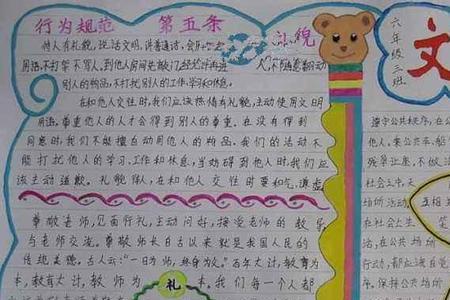 行为规范 第五条 礼貌
待人有礼貌,说话文明,讲普通话,会用
用语,不打架 不骂人,到他人房间先敲门,经允许再进 人,不随意翻动
别人的物品,不打扰别人的工作,学习和休息。
在和他人交往时,我们应该热情有礼貌,主动使用文明
用语,尊重他人的人才会得到别人的尊重。在没有得到
同意时,我们不能擅自动用他人的物品,我们的活动不
能打扰他人的学习、工作和休息,当妨碍到他人时,我们应
该主动道歉。礼貌待人,在和他人交往时要和气,谦虚
尊敬老师,见面行礼,主动问好,接受老师的教导
与老师交流。尊敬师长自古以来就是我国人民的
传统美德。古人云:“一日为师,终身为父。”百年大计,教育为
本,教育大计,教师为 本,我们每一个人都
礼
六年级三班
文
遵守公共秩序,在公
他人,乘公共车、船
残
在社会
社会工中,天
在社会上生 五相
活,在公共场所
行动,都应自觉
公共